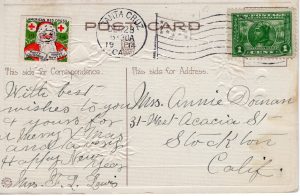 POST CARD
SANTA CRUZ
CAL.
This side for Correspondence.
This side for Address.
With best
wishes to you
& yours for
a Merry Xmas
and a very
Happy New
Year
Mrs.
Lewis
Mrs. Annie
31 West Acacia St
Stockton
Calif.
1